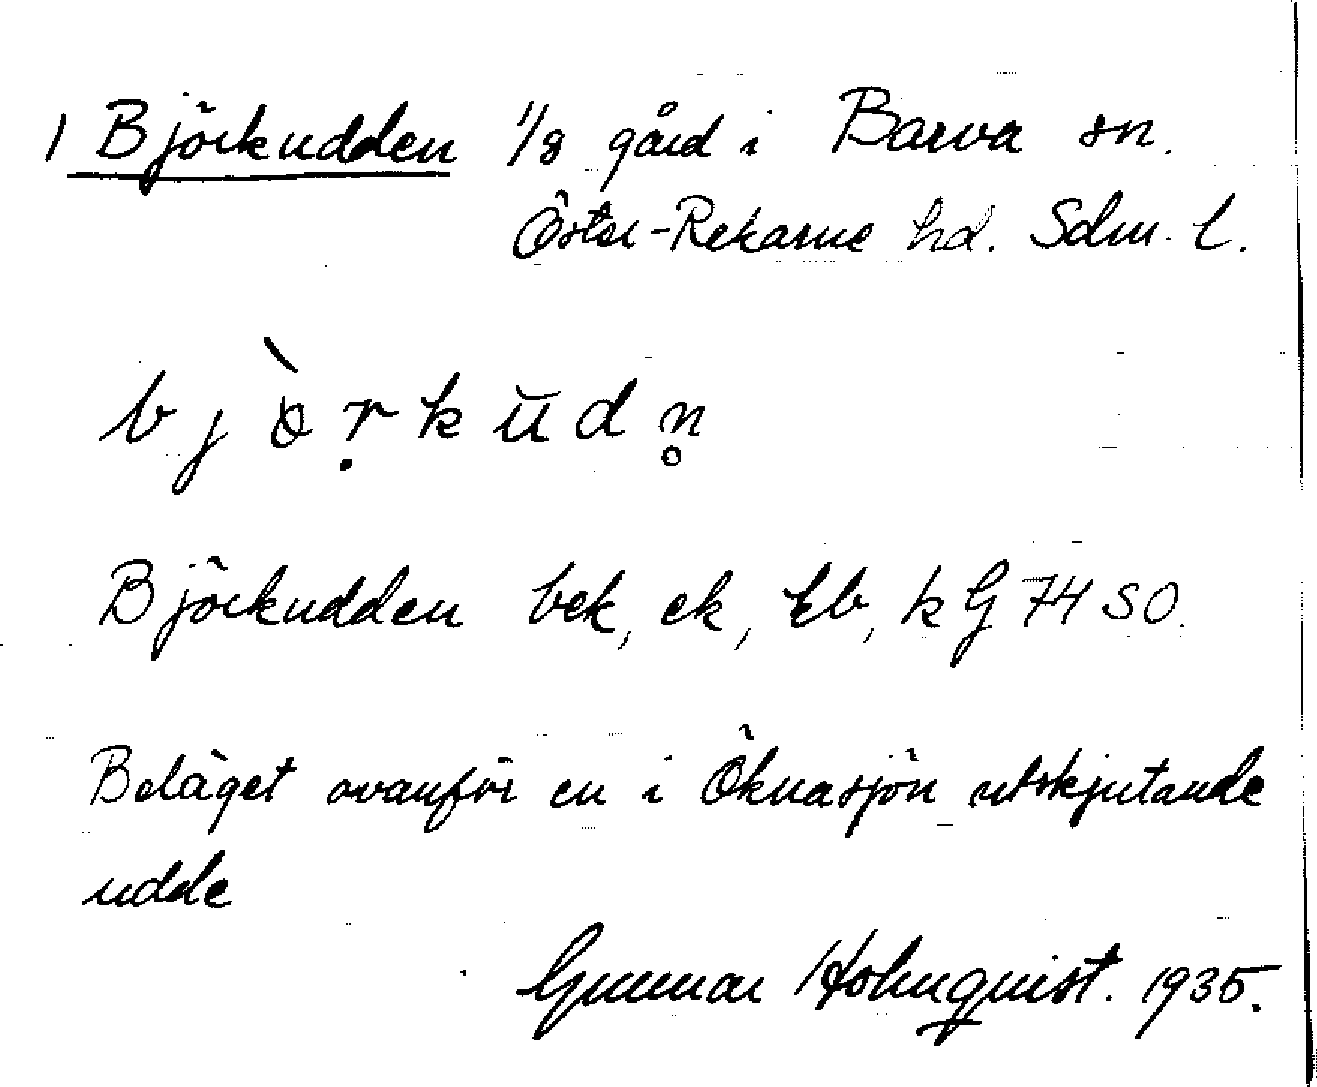 1 Björkudden 1/8 gård i Barva sn.
Öster-Rekarne hd. Sdm. l.
bjö̀ṛkŭdn̥
Björkudden bek, ek, kb, k G 74 SO.
Beläget ovanför en i Öknasjön utskjutande
udde
Gunnar Holmquist. 1935.